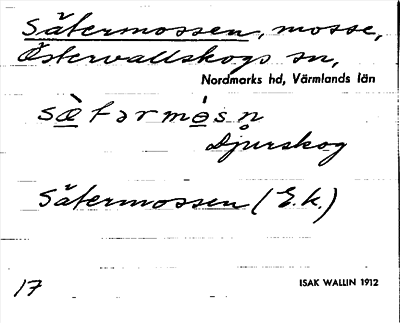 Sätermossen, mosse,
Östervallskogs sn,
Nordmarks hd, Värmlands län
sæ̀tərmósn
Djurskog
Sätermossen (E.k.)
17 ISAK WALLIN 1912